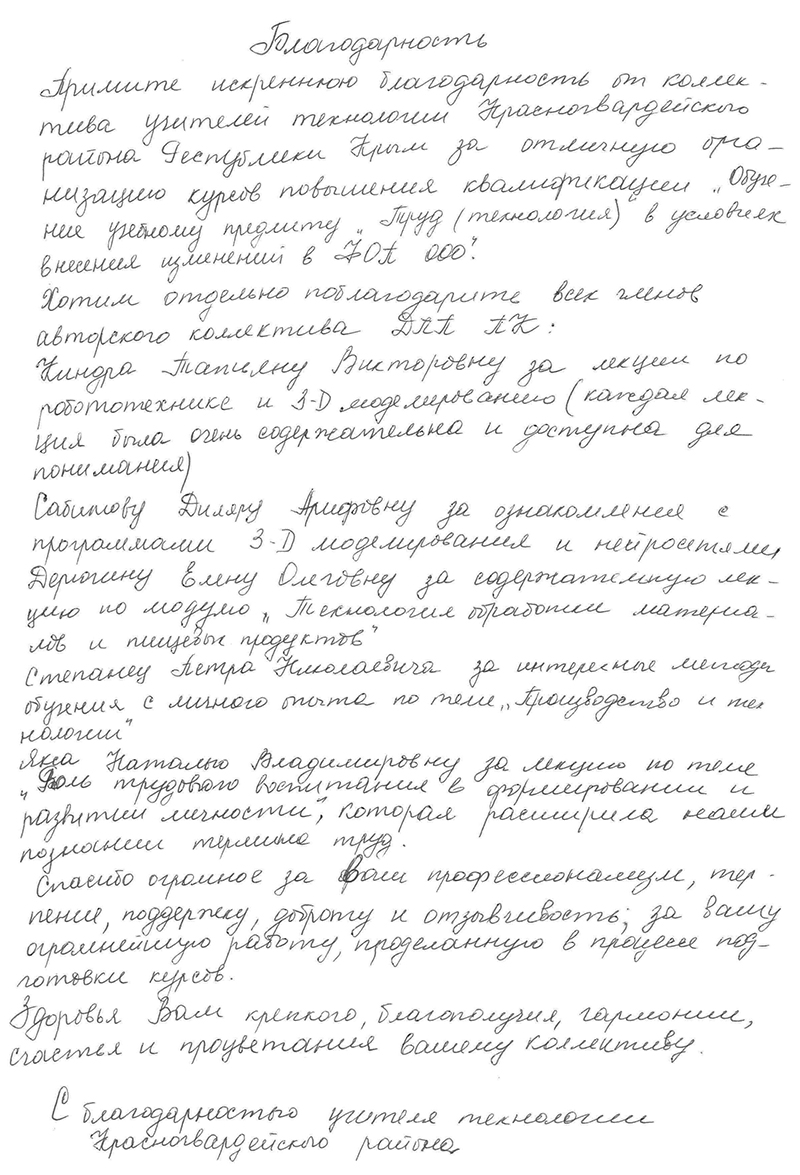 Благодарность
Примите искреннюю благодарность от коллек-
тива учителей технологии Красногвардейского
района Республики Крым за отличную орга-
низацию курсов повышения квалификации „Обуче-
ние учебному предмету „Труд (технология) в условиях
внесения изменений в ФОП ООО".
Хотим отдельно поблагодарить всех членов
авторского коллектива ДПП ПК:
Киндра Татьяну Викторовну за лекции по
робототехнике и 3-D моделированию (каждая лек-
ция была очень содержательна и доступна для
понимания)
Сабитову Диляру Арифовну за ознакомления с
программами 3-D моделирования и нейросетями
Дерюгину Елену Олеговну за содержательную лек-
цию по модулю „Технология обработки материа-
лов и пищевых продуктов"
Степанец Петра Николаевича за интересные методы
обучения с личного опыта по теме „Производство и тех
нологии"
Яка Наталью Владимировну за лекцию по теме
„Роль трудового воспитания в формировании и
развитии личности", которая расширила наши
познании термина труд.
Спасибо огромное за Ваш профессионализм, тер-
пение, поддержку, доброту и отзывчивость; за вашу
огромнейшую работу, проделанную в процессе под-
готовки курсов.
Здоровья Вам крепкого, благополучия, гармонии,
счастья и процветания вашему коллективу.
С благодарностью учителя технологии
Красногвардейского района